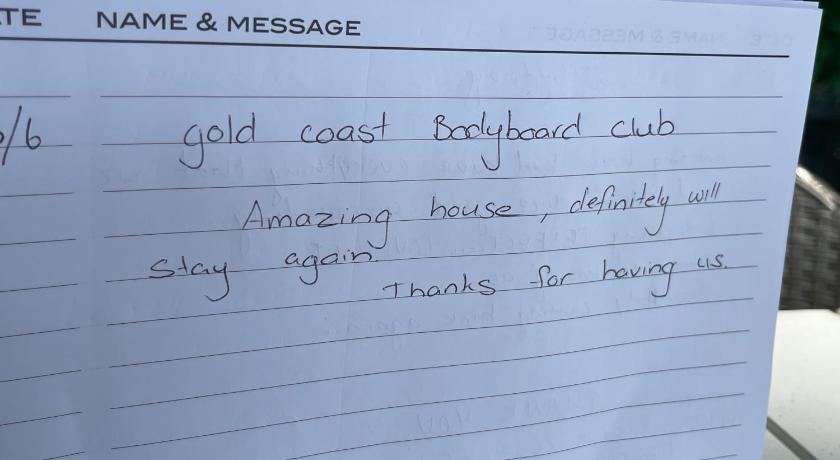 TE NAME & MESSAGE
/6 gold coast Bodyboard club
Amazing house, definitely will
stay again.
Thanks for having us.